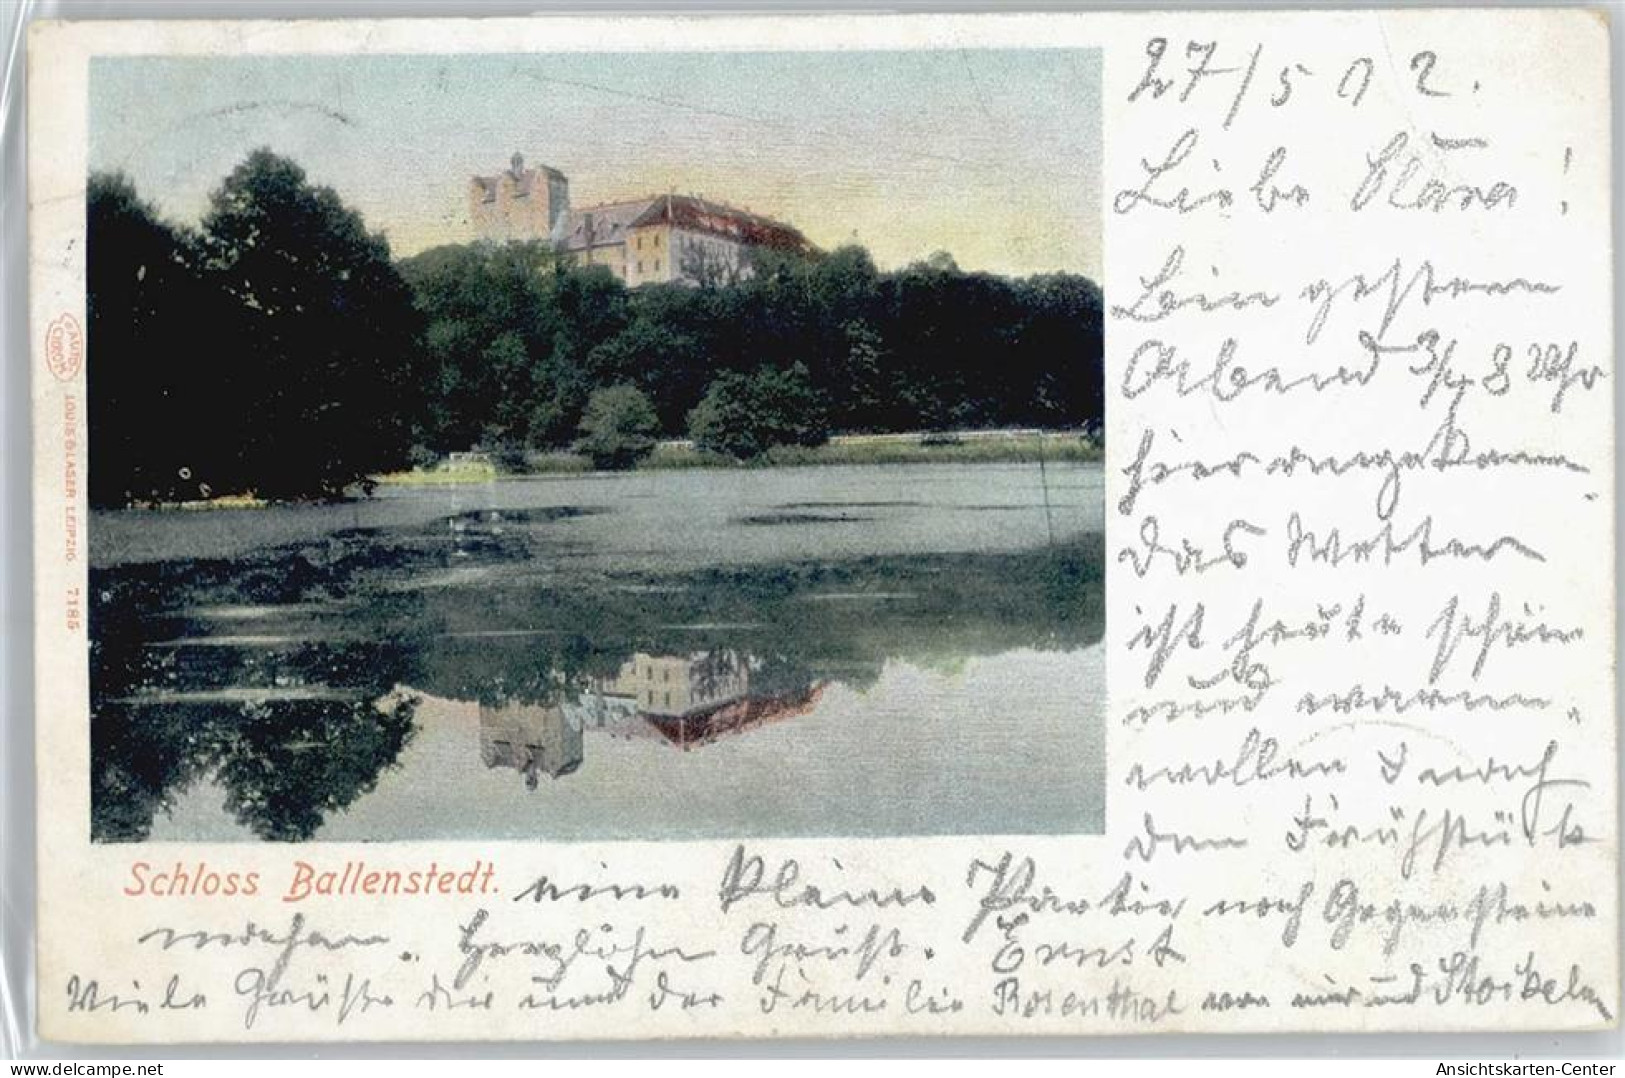 27/5 02.
Liebe Klara!
Bin gestern
Abend 3/4 8 Uhr
hier angekomm.
das Wetter
ist heute schön
und warm.
wollen nach
dem Frühstück
Schloss Ballenstedt.
eine kleine Partie nach Gegensteine
machen. Herzlichen Gruß. Ernst
Viele Grüße dir und der Familie Rosenthal von mir und
AUTO CHROM
LOUIS GLASER LEIPZIG 7185
delcampe.net
Ansichtskarten-Center